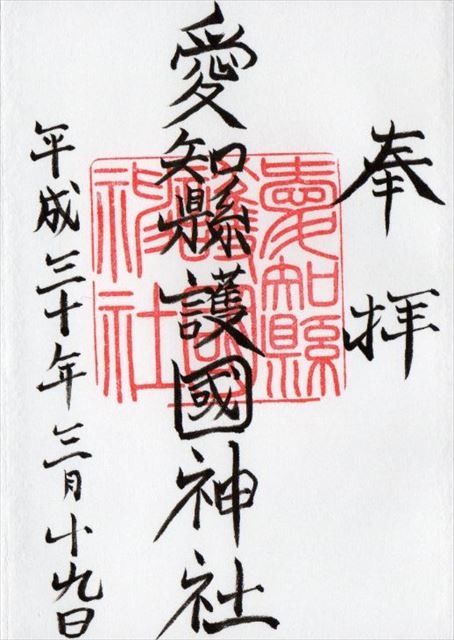 奉拝
愛知縣護國神社
愛知縣
護國
神社
平成三十年三月十九日